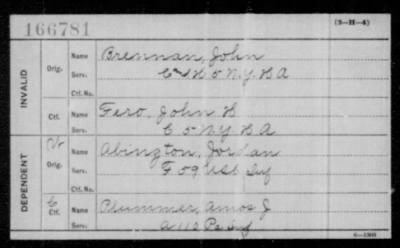 166781
(3—H—4)
INVALID
Orig.
Name Brennan, John
Serv. H 5 N.Y. H A
Ctf. No.
Ctf.
Name Fero, John H
Serv. C 5 N.Y. H A
DEPENDENT
Orig.
Name Abington, Jordan
Serv. F 09 US Inf
Ctf. No.
C
Ctf.
Name Plummer, Amos J
Serv. A 110 Pa Inf